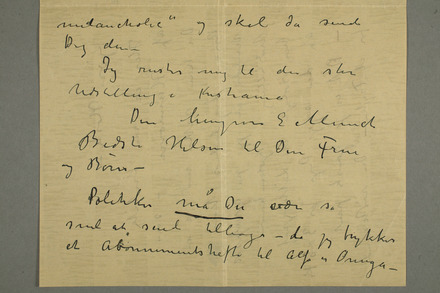 melancholie" og skal da sende
Dig den
Jeg ruster mig til den store
Udstilling i Kristiania
Din hengivne E Munch
Bedste Hilsen til Din Frue
og Børn –
Politiken må Du være så
snil at sende tilbage – da jeg trykker
et Abonnementshefte til Alfa og Omega –